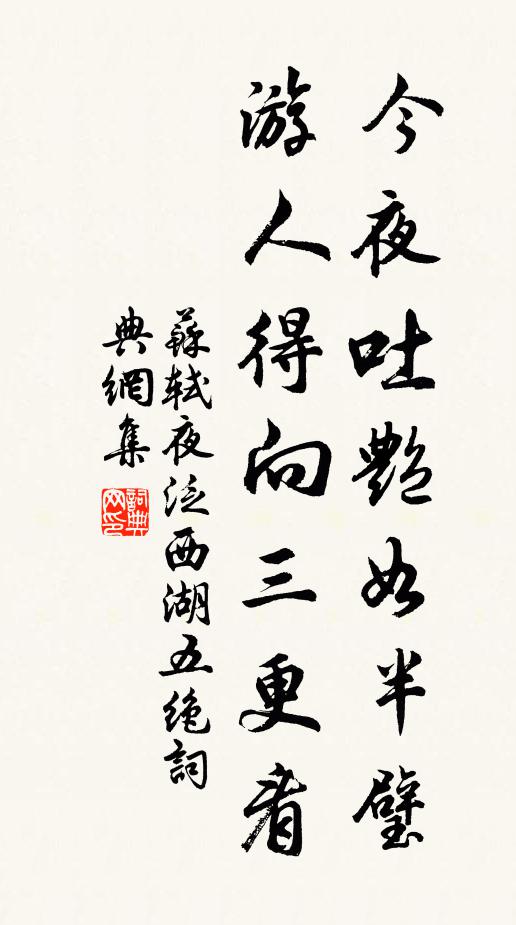 今夜吐艷如半璧
游人得向三更看
蘇軾夜泛西湖五絶詞
典網集
詞典
网印